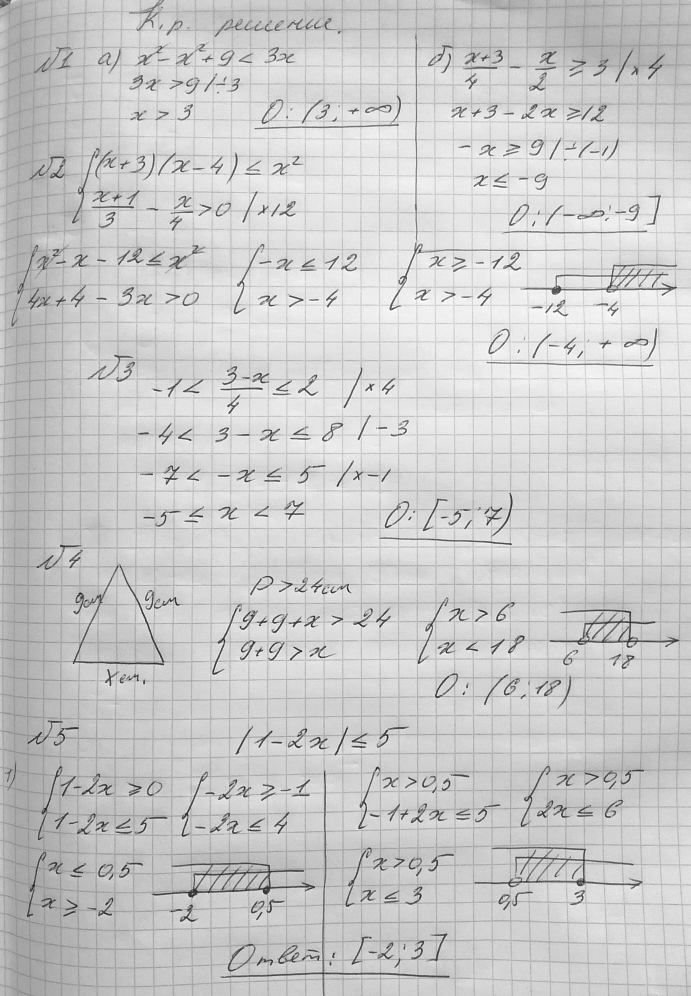 К.р. решение.
№1 а) x² - x² + 9 < 3x
3x > 9 | ÷3
x > 3 О: (3; +∞)
б) x+3/4 - x/2 ≥ 3 | ×4
x + 3 - 2x ≥ 12
-x ≥ 9 | ÷(-1)
x ≤ -9
О: (-∞; -9]
№2 { (x+3)(x-4) ≤ x²
x+1/3 - x/4 > 0 | ×12
{ x² - x - 12 ≤ x² { -x ≤ 12 { x ≥ -12
4x + 4 - 3x > 0 x > -4 x > -4
-12 -4
О: (-4; +∞)
№3 -1 < 3-x/4 ≤ 2 | ×4
-4 < 3 - x ≤ 8 | -3
-7 < -x ≤ 5 | ×-1
-5 ≤ x < 7 О: [-5; 7)
№4
9см 9см
x см.
P > 24см
{ 9+9+x > 24 { x > 6
9+9 > x x < 18
6 18
О: (6; 18)
№5 |1-2x| ≤ 5
1) { 1-2x ≥ 0 { -2x ≥ -1
1-2x ≤ 5 -2x ≤ 4
{ x ≤ 0,5
x ≥ -2
-2 0,5
{ x > 0,5 { x > 0,5
-1+2x ≤ 5 2x ≤ 6
{ x > 0,5
x ≤ 3
0,5 3
Ответ: [-2; 3]